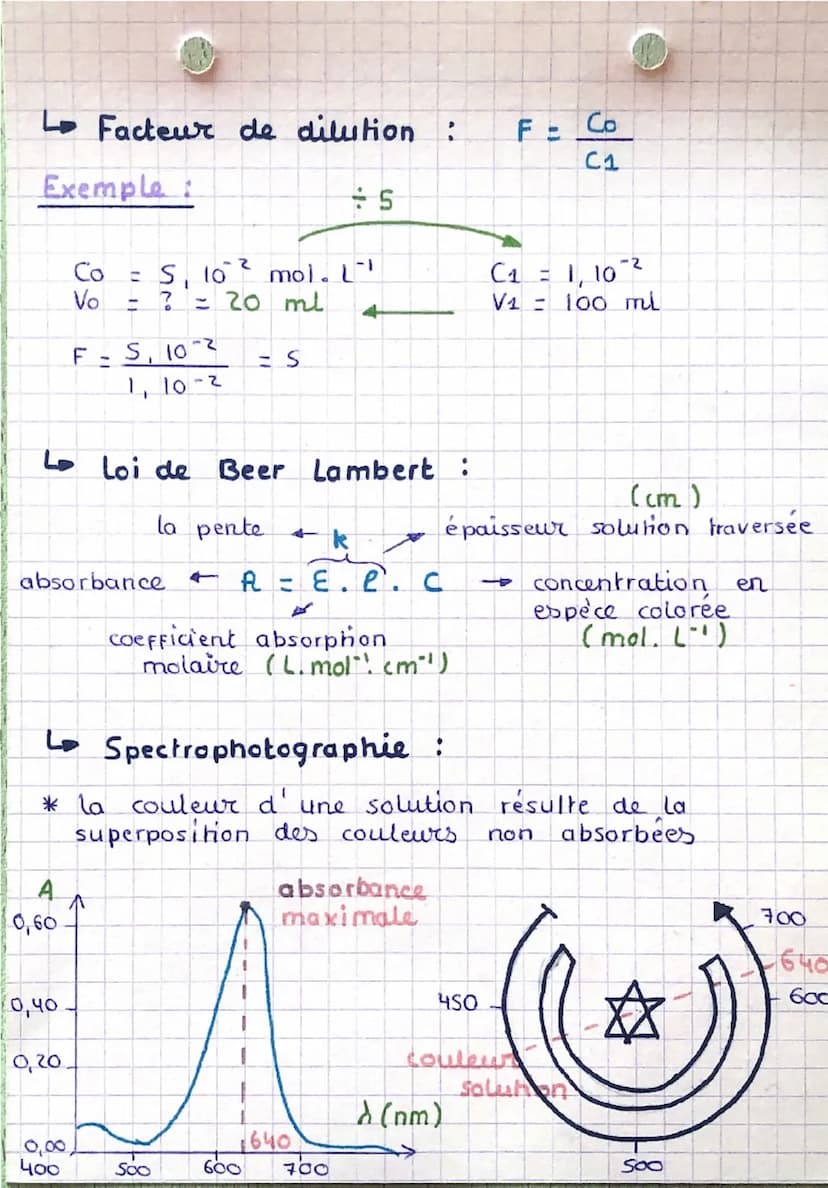 ↳ Facteur de dilution : F = C0 / C1
Exemple :
÷ 5
C0 = 5, 10⁻² mol. L⁻¹
V0 = ? = 20 ml
C1 = 1, 10⁻²
V1 = 100 ml
F = 5, 10⁻² / 1, 10⁻² = 5
↳ Loi de Beer Lambert :
(cm)
la pente ← k ↗ épaisseur solution traversée
absorbance ← A = ε. ℓ. C → concentration en
espèce colorée
(mol. L⁻¹)
coefficient absorption
molaire (L. mol⁻¹. cm⁻¹)
↳ Spectrophotographie :
* la couleur d'une solution résulte de la
superposition des couleurs non absorbées
A
absorbance
maximale
0,60
0,40
0,20
0,00
400
500
600
700
640
λ (nm)
700
640
600
450
couleur
solution
500